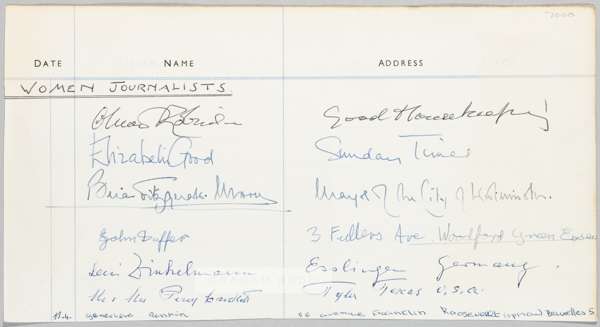 2000
DATE NAME ADDRESS
WOMEN JOURNALISTS
Good Housekeeping
Elizabeth Good Sunday Times
Brian Fitzgerald Moore Mayor of the City of Westminster.
John Duffer 3 Fullers Ave Woodford Green Essex
Dinkelmann Esslingen Germany.
Mr & Mrs Percy Tyler Texas U.S.A.
11.4. Genevieve avenue Franklin Roosevelt Bruxelles 5